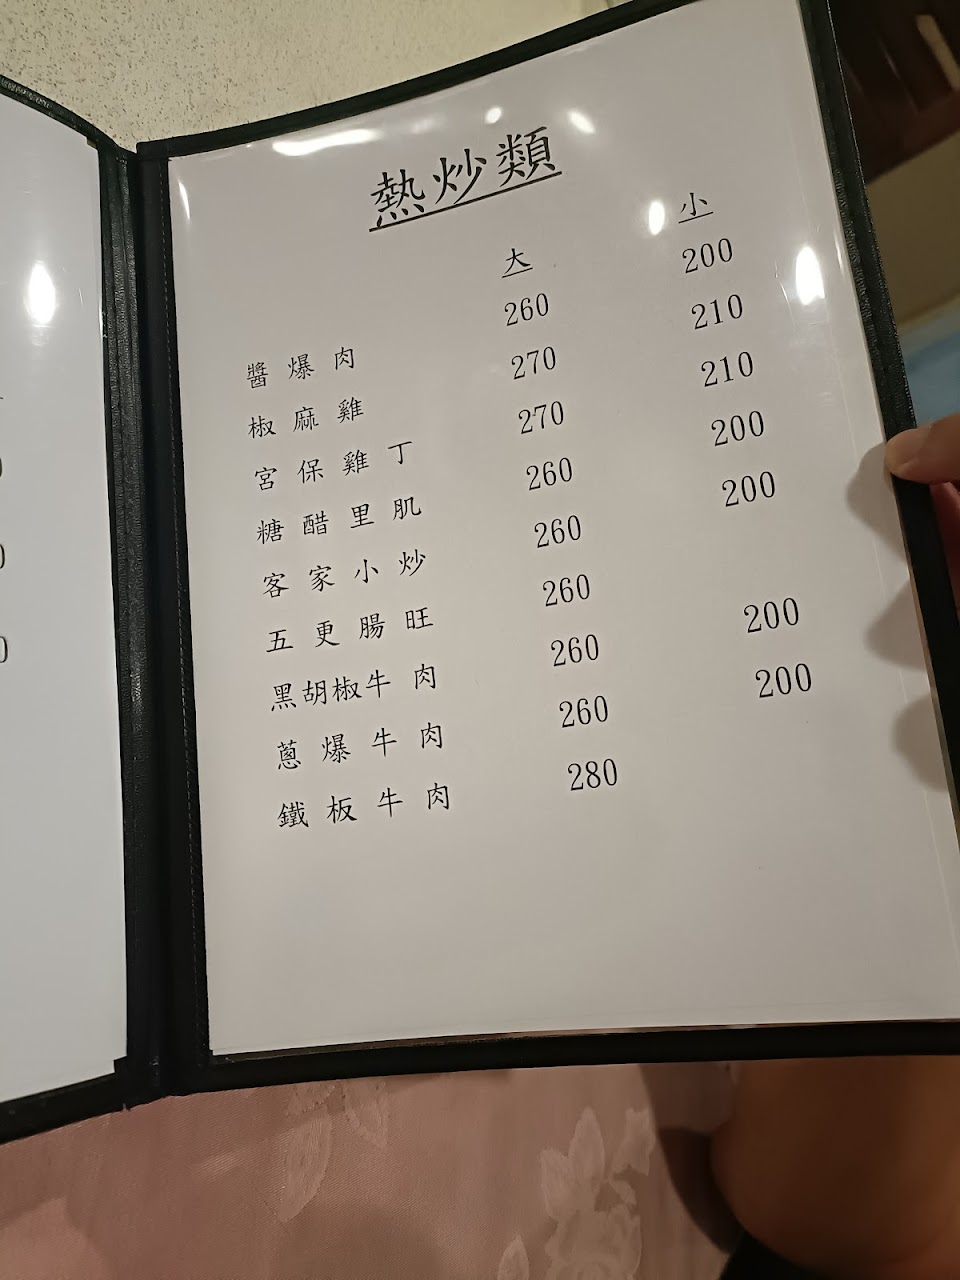 熱炒類
大 小
醬爆肉 260 200
椒麻雞 270 210
宮保雞丁 270 210
糖醋里肌 260 200
客家小炒 260 200
五更腸旺 260
黑胡椒牛肉 260 200
蔥爆牛肉 260 200
鐵板牛肉 280